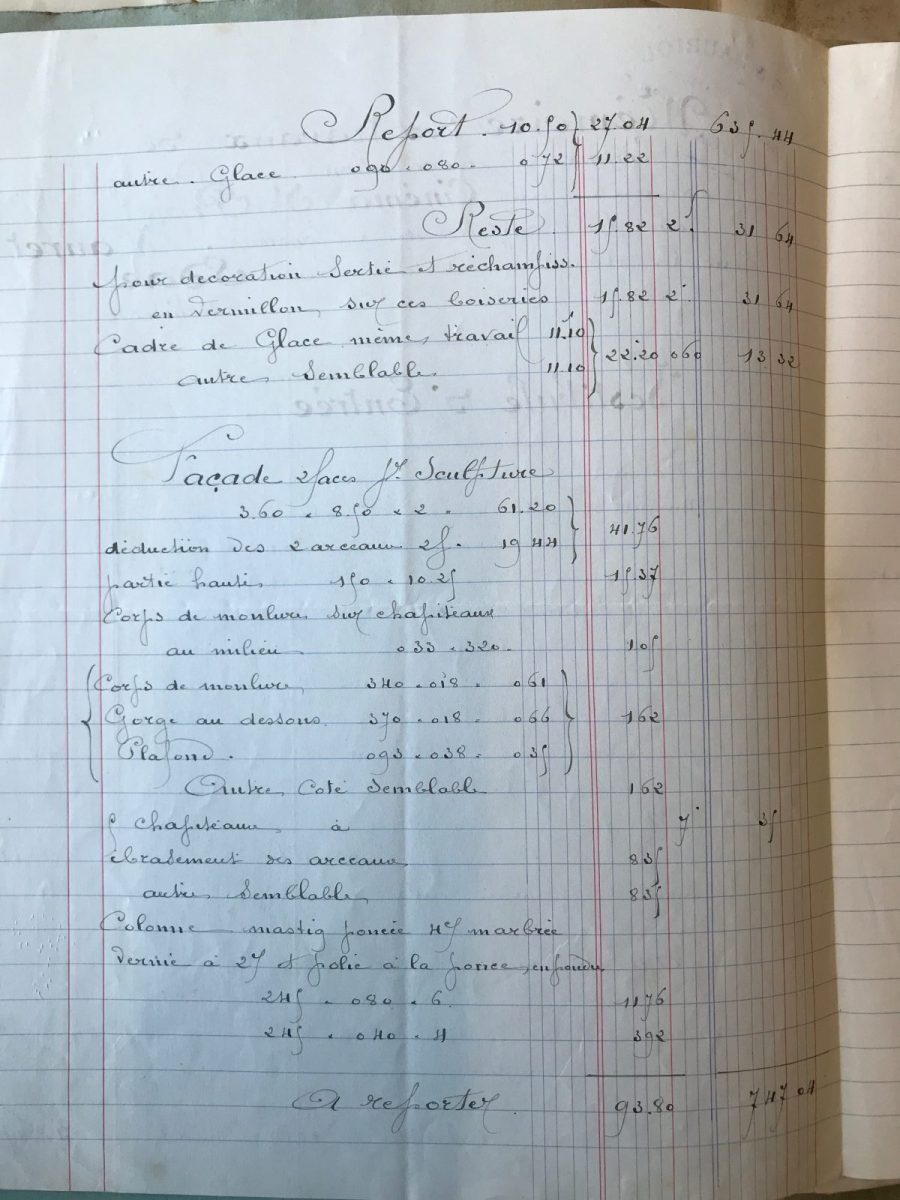 Report. 10.50 } 27 04 635. 44
autre. Glace. 090 . 080 . 0 72 } 11.22
Reste 15.82 2f. 31 64
pour decoration Sertie et réchampiss.
en vermillon, sur ces boiseries 15.82 2f. 31 64
Cadre de Glace même travail 11.10 } 22.20 060 13 32
autre Semblable. 11.10 }
Façade 2 faces Sculpture
3.60 . 8.50 x 2 . 61.20 } 41.76
déduction des 2 arceaux 2f. 19 44 }
partie haute 150 . 10.25 15.37
Corps de moulure sur chapiteaux
au milieu 033 . 320 . 105
{ Corps de moulure 340 . 018 . 061 }
{ Gorge au dessous 370 . 018 . 066 } 162
{ Plafond . 093 . 038 . 035 }
Autre Coté Semblable 162
5 chapiteaux à 7f 35
ébrasement des arceaux 835
autre Semblable 835
Colonne mastiq poncée 4 marbrée
vernie à 2 et polie à la ponce, en poudre
245 . 080 . 6. 11.76
245 . 040 . 4 392
A reporter. 93.80 747 04